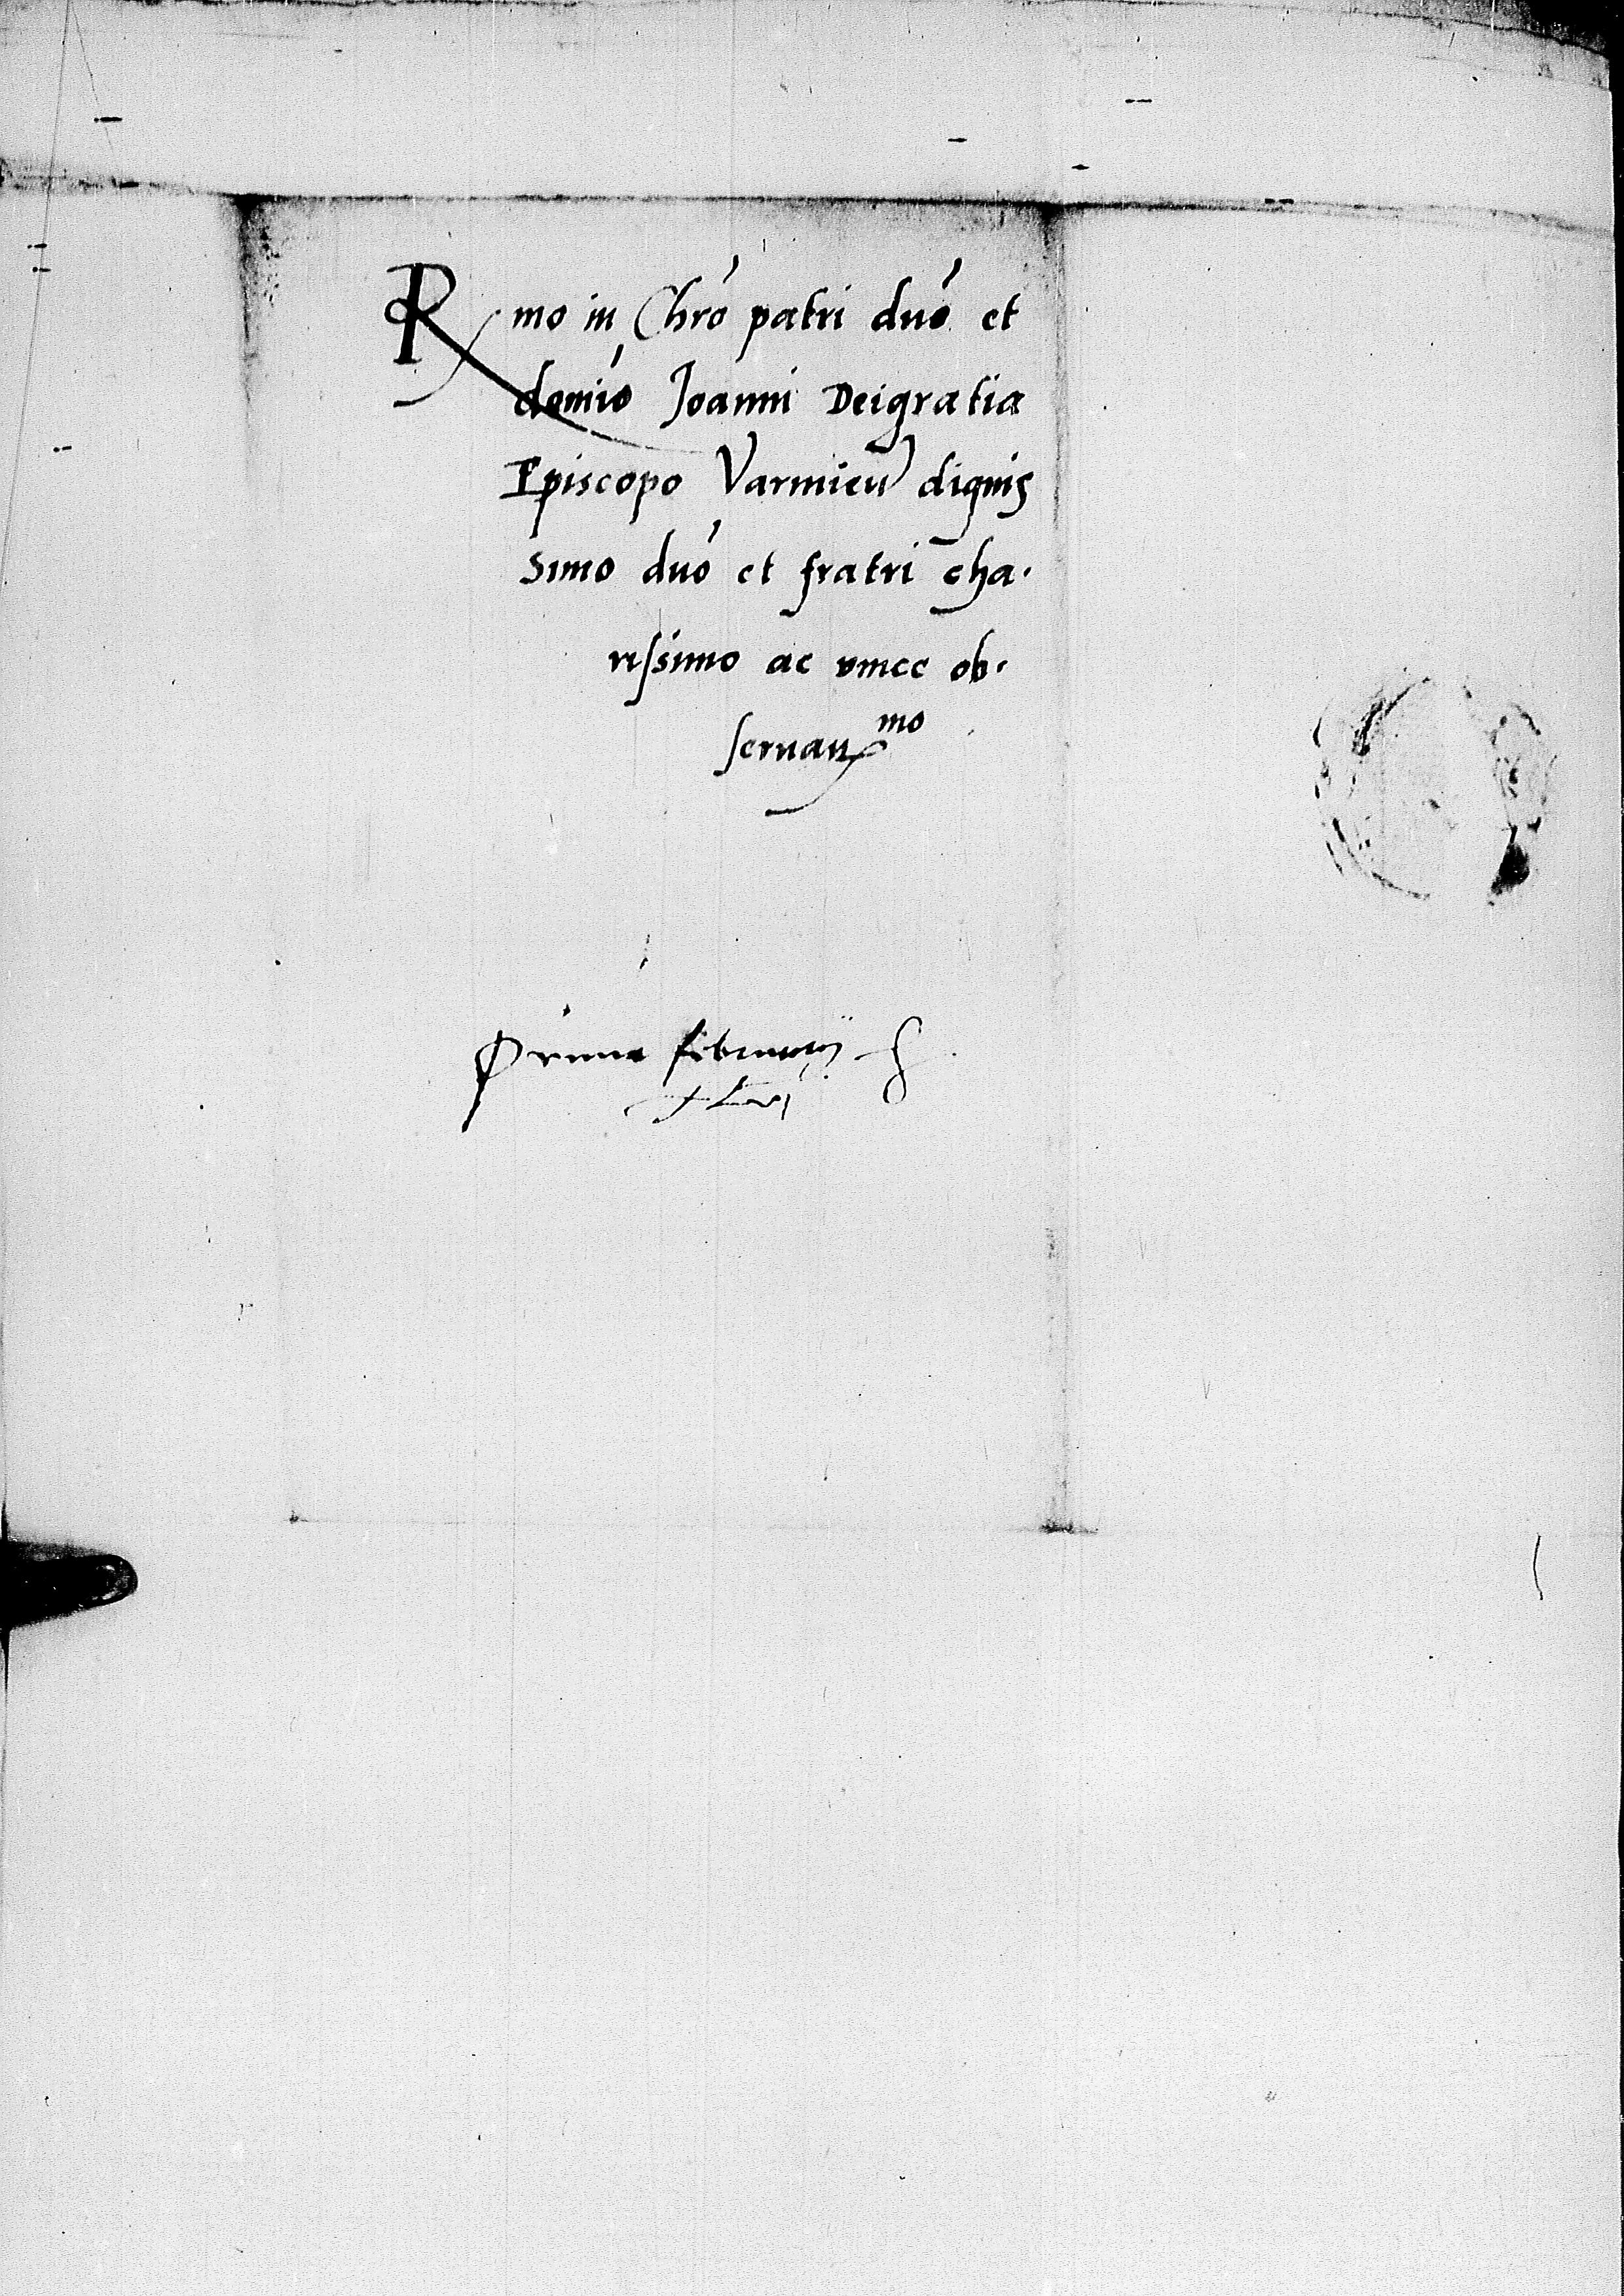 Rmo in Chro patri dno et
domio Joanni Dei gratia
Episcopo Varmien dignis
simo dno et fratri cha.
rissimo ac unice ob.
servanmo
Prima februarij
xlvj